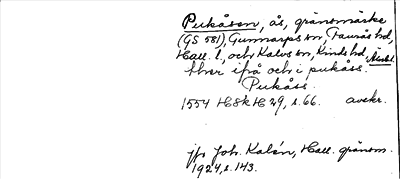 Pukåsen, ås, gränsmärke
(GS 581), Gunnarps sn, Faurås hd,
Hall. l., och Kalvs sn, Kinds hd, Älvsb. l.
ifrå och i pukåss.
Pukåss.
1554 H8k H 29, s. 66. avskr.
jfr Joh. Kalén, Hall. gränsm.
1924, s. 143.